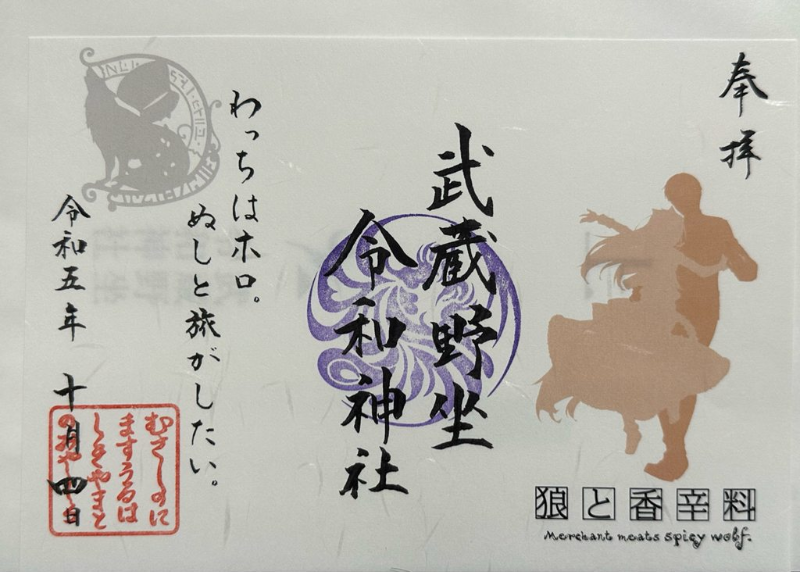 奉拝
狼と香辛料
Merchant meats spicy wolf.
武蔵野坐
令和神社
わっちはホロ。
ぬしと旅がしたい。
令和五年 十月四日
むさしのに
ますうるは
しきやまと